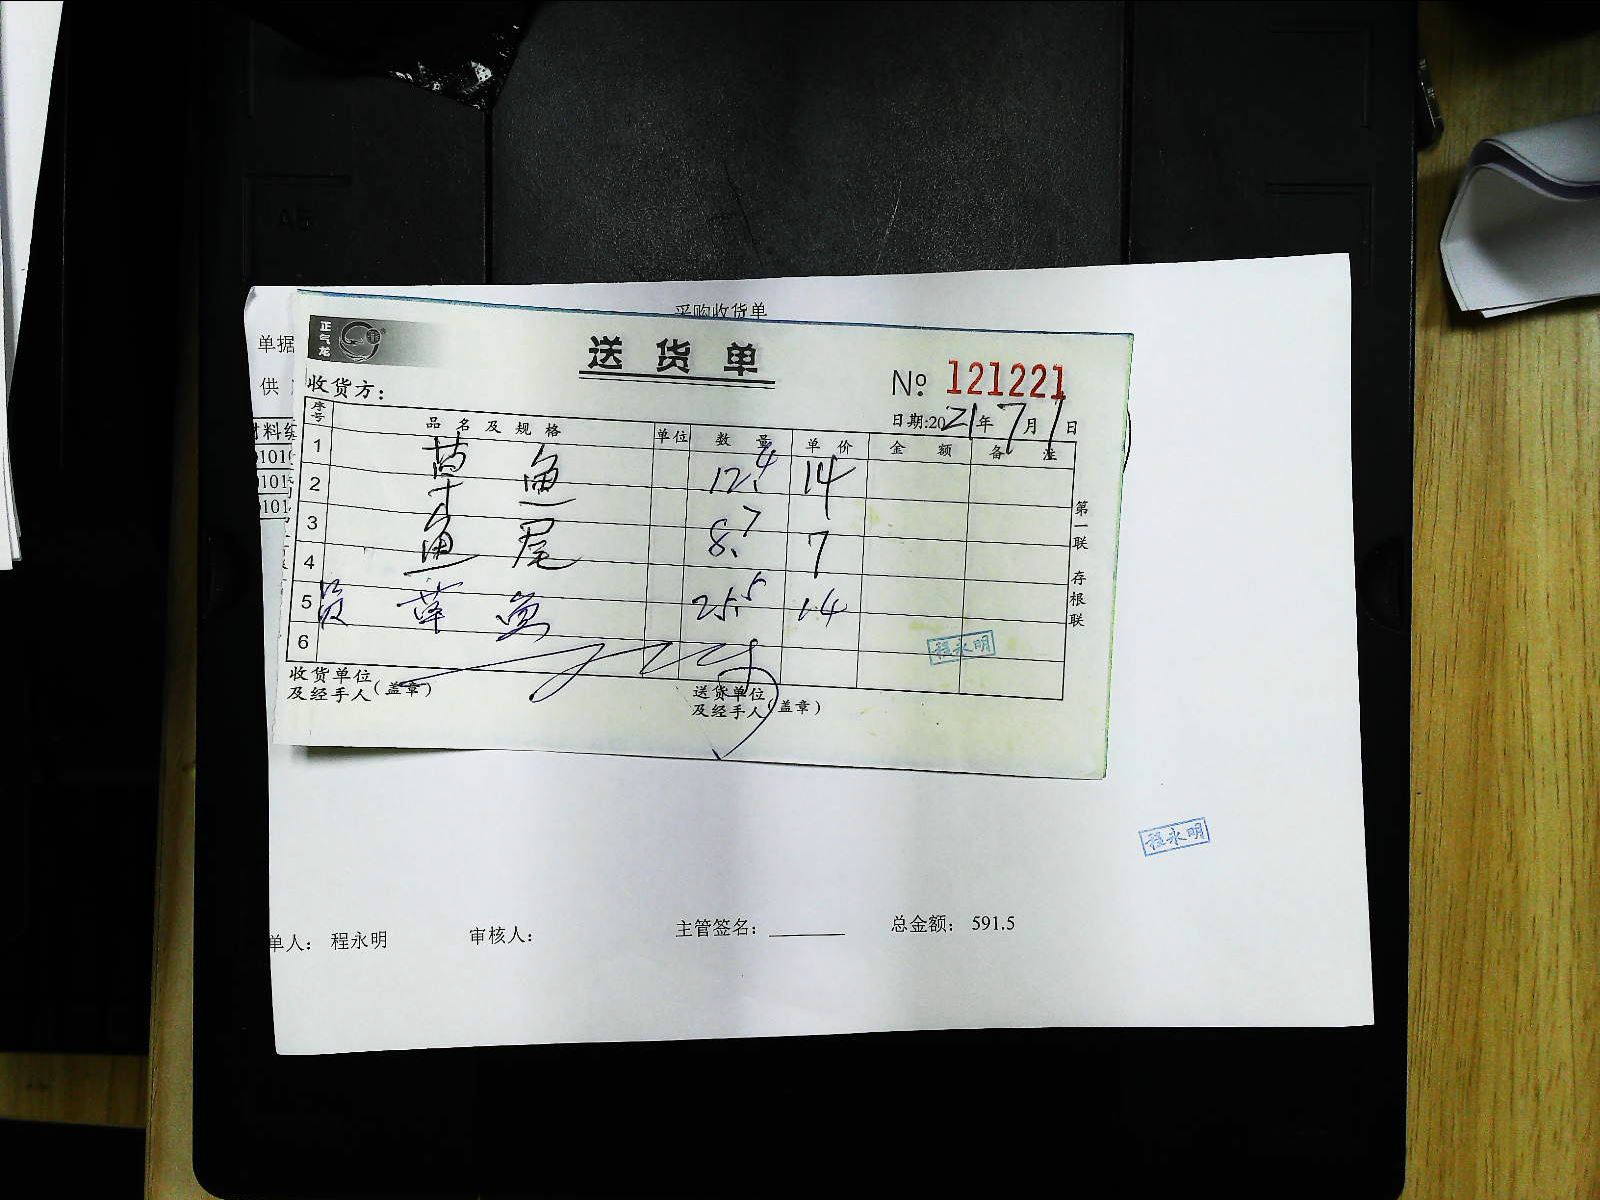 采购收货单
单据
供
材料编
0101
0101
0101
正气龙
送货单
№ 121221
收货方：
日期:2021年7月1日
序号 品名及规格 单位 数量 单价 金额 备注
1
2 鱼 12.4 14
3
4 鱼尾 8.7 7
5 鱼 25.5 14
6
第一联 存根联
程永明
收货单位及经手人(盖章)
送货单位及经手人(盖章)
程永明
单人： 程永明 审核人： 主管签名： 总金额： 591.5